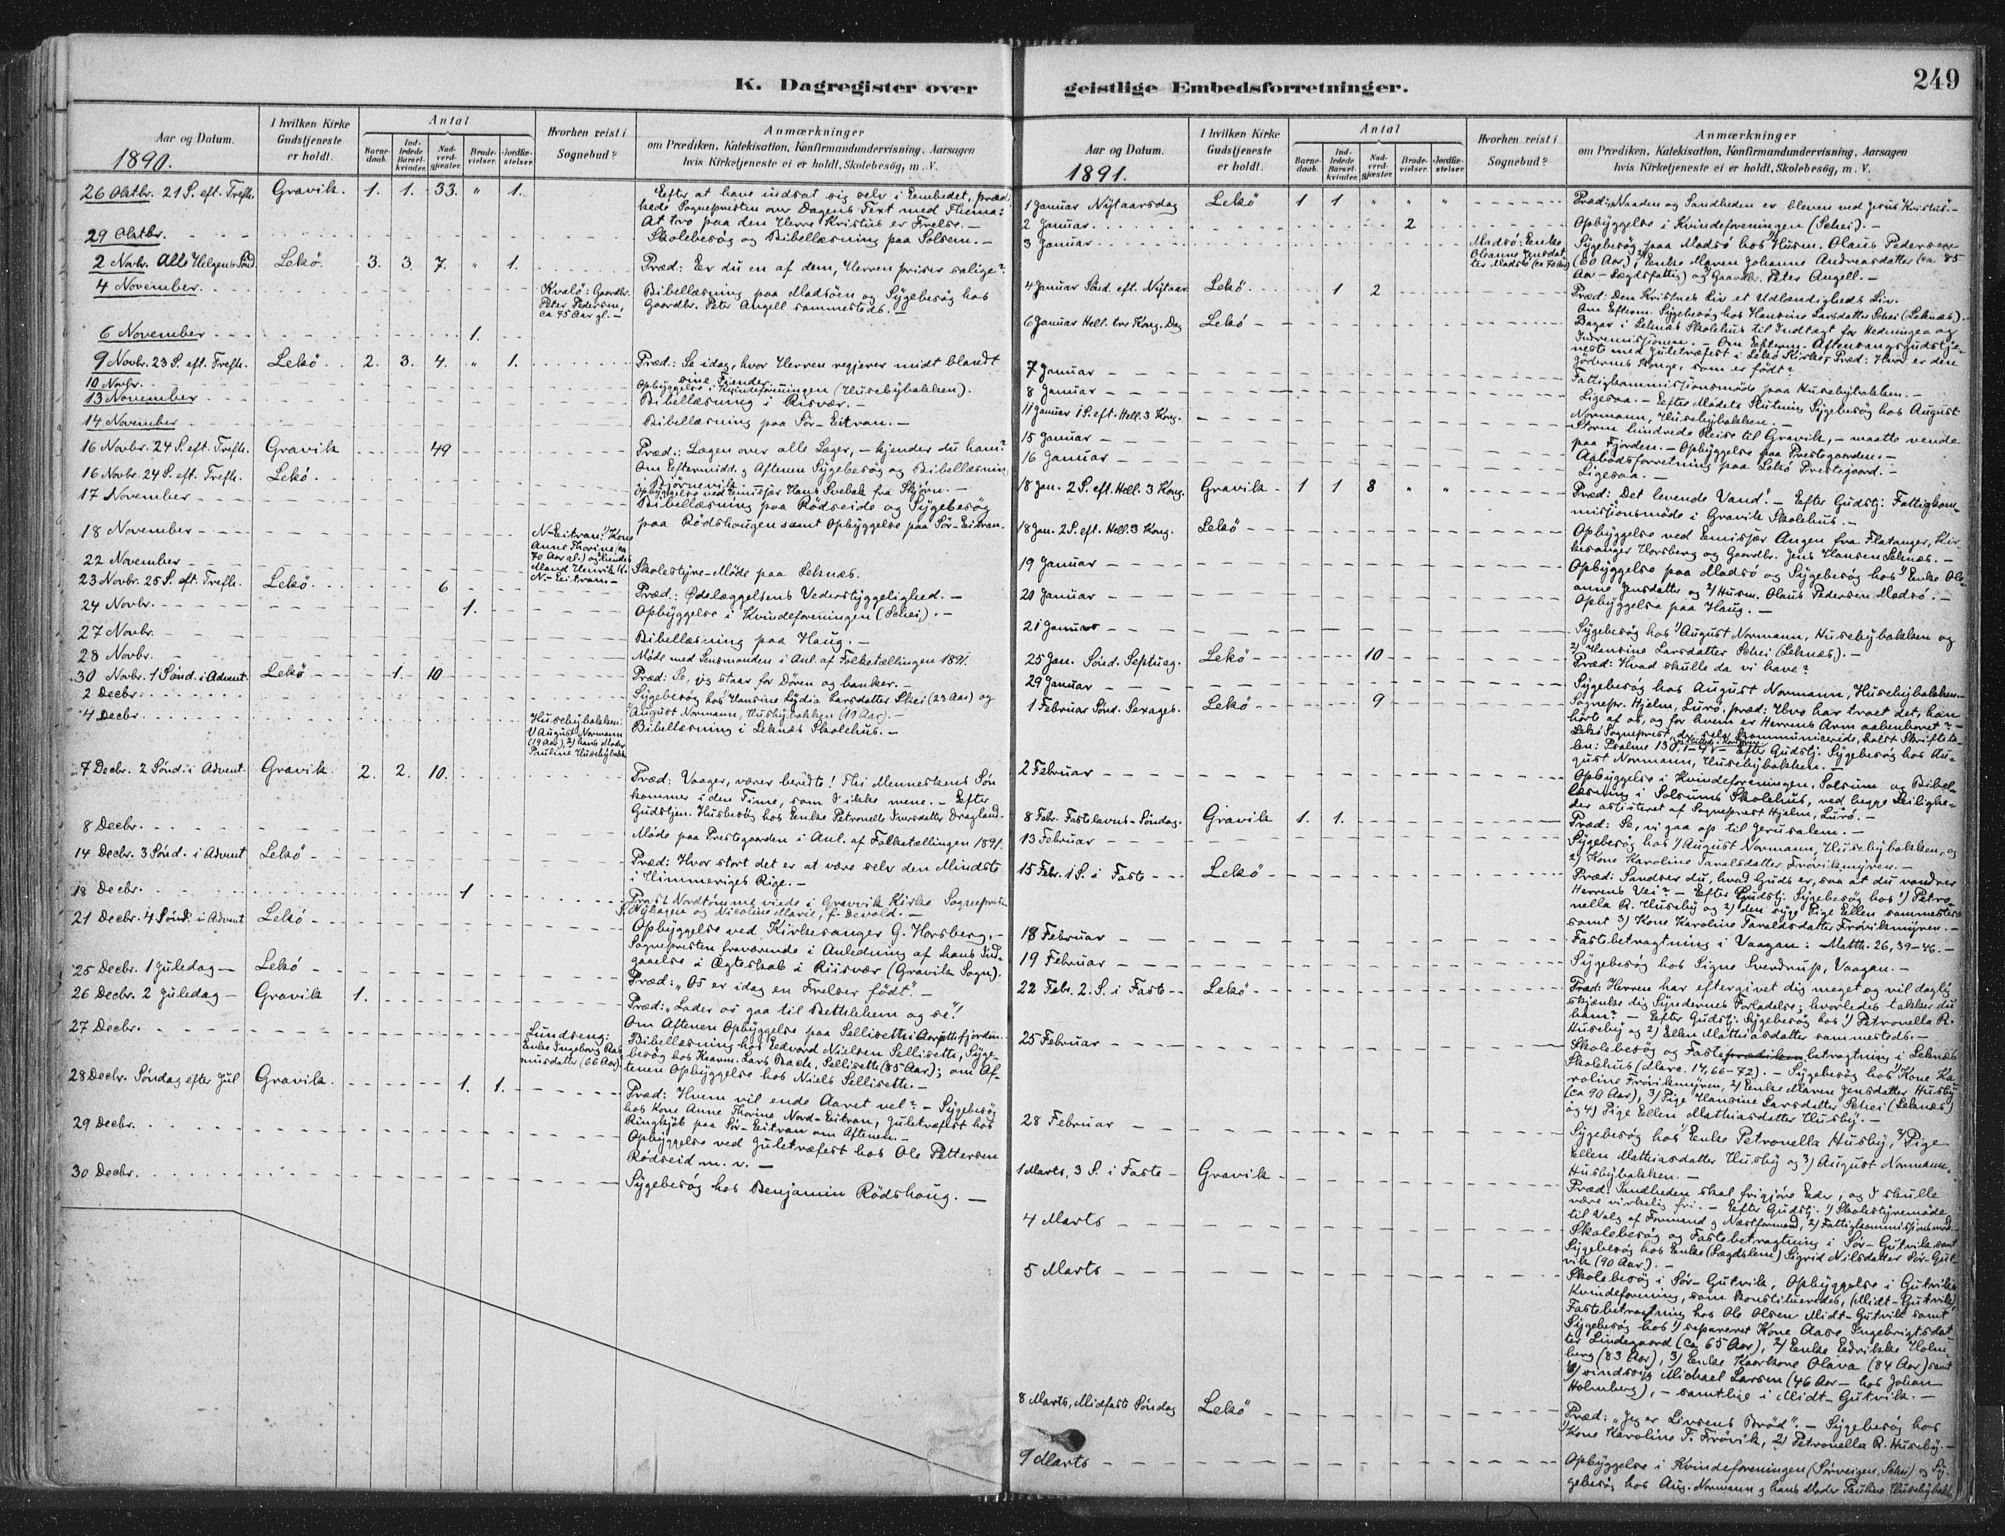 K. Dagregister over
Aar og Datum.
1890.
I hvilken Kirke
Gudstjeneste
er holdt.
Antal
Barne-
daab.
Ind-
ledede
Barsel-
kvinder.
Nad-
verd-
gjester.
Brude-
vielser.
Jordfæ-
stelser.
Hvorhen reist i
Sognebud?
Anmærkninger
om Prædiken, Katekisation, Konfirmandundervisning, Aarsagen
hvis Kirketjeneste ei er holdt, Skolebesøg, m. V.
26 Oktbr. 21 S. eft. Trefh. Gravik. 1. 1. 33. " 1. Efter at have indsat sig selv i Embedet, præd-
kede Sognepresten over Dagens Text med Thema:
At tro paa den Herre Kristus er Frelse. —
29 Oktbr. Skolebesøg og Bibellæsning paa Solsem. —
2 Novbr. Alle Helgens Sønd. Lekø. 3. 3. 7. " 1. Præd: Er du en af dem, Herren priser salige?
4 November. Kvalø: Gaardbr.
Peter Pedersen
ca 75 Aar gl. Bibellæsning paa Madsøen og Sygebesøg hos
Gaardbr. Peter Angell sammesteds. —
6 November 1.
9 Novbr. 23 S. eft. Trefh. Lekø. 2. 3. 4. " 1. Præd: Se idag, hvor Herren regjerer midt blandt
sine Fiender.
10 Novbr. Opbyggelse i Kvindeforeningen (Husebybakken).
13 November Bibellæsning i Risvær. —
14 November Bibellæsning paa Sør-Eitran. —
16 Novbr. 24 S. eft. Trefh. Gravik 49 Præd: Lagen over alle Lager, — kjender du ham?
Om Eftermidd. g Aftenen Sygebesøg og Bibellæsning
i Bjørnevik. —
16 Novbr. 24 S. eft. Trefh. Lekø. Opbyggelse ved Emisjær Hans Svebak fra Skjørn. —
17 November Bibellæsning paa Rødseide og Sygebesøg
paa Rødshougen samt Opbyggelse paa Sør-Eitran.
18 November N-Eitran: Kone
Anne Thorine (ca
70 Aar gl.) og hendes
Mand Henrik H.
N-Eitran. —
22 November Skolestyre-Møde paa Leknæs.
23 Novbr. 25 S. eft. Trefh. Lekø. 6 Præd: Ødelæggelsens Vederstyggelighed. —
24 Novbr. 1. Opbyggelse i Kvindeforeningen (Schei). —
27 Novbr. Bibellæsning paa Haug. —
28 Novbr. Møde med Lensmanden i Anl. af Folketællingen 1891.
30 Novbr. 1 Sønd. i Advent Lekø 1. 10 Præd: Se, jeg staar for Døren og banker. —
2 Decbr. Sygebesøg hos Hansine Lydia Larsdatter Skei (23 Aar) og
August Normann, Husebybakken (19 Aar). —
4 Decbr. Husebybakken:
1) August Normann
(19 Aar), 2) hans Moder
Pauline Husebybakk. Bibellæsning i Leknæs Skolehus. —
7 Decbr. 2 Sønd. i Advent Gravik 2. 2. 10. Præd: Vaager, værer beredte! Thi Menneskens Søn
kommer i den Time, som I ikke mene. — Efter
Gudstjen. Husbesøg hos Enke Petronelle Iversdatter Dragland.
8 Decbr. Møde paa Prestegaarden i Anl. af Folketællingen 1891.
14 Decbr. 3 Sønd. i Advent Lekø Præd: Hvor stort det er at være selv den Mindste
i Himmeriges Rige. —
18 Decbr. 1 Provst Nordtømme viede i Gravik Kirke Sogneprest
Nyhagen og Nicoline Marie, f. Devold. —
21 Decbr. 4 Sønd. i Advent Lekø Opbyggelse ved Kirkesanger G. Horsberg, —
Sognepresten fraværende i Anledning af hans Ind-
gaaelse i Ægteskab i Riisvær (Gravik Sogn).
25 Decbr. 1 Juledag Lekø Præd: „Os er idag en Frelser født". —
26 Decbr. 2 Juledag Gravik 1. Præd: „Lader os gaa til Bethlehem og se"!
Om Aftenen Opbyggelse paa Sellisette i Aarsethfjorden.
27 Decbr. Lundseng:
Enke Ingeborg Ras-
musdatter (66 Aar) Bibellæsning hos Edvard Nielsen Sellisette, Syge-
besøg hos Kaarm. Lars Baade, Sellisette (85 Aar); om Af-
tenen Opbyggelse hos Niels Sellisette. —
28 Decbr. Søndag efter Jul Gravik. 1. 1. Præd: Hvem vil ende Aaret vel? — Sygebesøg
hos Kone Anne Thorine Nord-Eitran, Juletræfest hos
Ringkjøb paa Sør-Eitran om Aftenen. —
29 Decbr. Opbyggelse ved Juletræfest hos Ole Pettersen
Rødseid m. v. —
30 Decbr. Sygebesøg hos Benjamin Rødshoug. —
geistlige Embedsforretninger.
249
Aar og Datum.
1891.
I hvilken Kirke
Gudstjeneste
er holdt.
Antal
Barne-
daab.
Ind-
ledede
Barsel-
kvinder.
Nad-
verd-
gjester.
Brude-
vielser.
Jordfæ-
stelser.
Hvorhen reist i
Sognebud?
Anmærkninger
om Prædiken, Katekisation, Konfirmandundervisning, Aarsagen
hvis Kirketjeneste ei er holdt, Skolebesøg, m. V.
1 Januar Nytaarsdag Lekø 1 1 " " " Præd: „Naaden og Sandheden er bleven ved Jesus Kristus". —
2 Januar 2 Opbyggelse i Kvindeforeningen (Schei). —
3 Januar Madsø: Enke
Oleanne Jensdat-
ter Madsø (ca 70 Aar) Sygebesøg paa Madsø hos 1) Husm. Olaus Pedersen
(60 Aar), 2) Enke Maren Johanne Andreasdatter (ca 85
Aar — Lægdsfattig) og Gaardb. Peter Angell. —
4 Januar Sønd. eft. Nytaar Lekø 1 2 Præd: Den Kristnes Liv et Udlændigheds Liv.
Om Efterm. Sygebesøg hos Hansine Larsdatter Schei (Leknæs). —
6 Januar Hell. tre Kong. Dag Lekø Bazar i Leknæs Skolehus til Indtægt for Hedningen og
Indremissionen. — Om Efterm. Aftensangsgudstje-
neste med Juletræfest i Lekø Kirke; Præd: Hvor er den
Jødernes Konge, som er født?
7 Januar Fattigkommissionsmøde paa Husebybakken. —
8 Januar Ligesaa. — Efter Mødets Slutning Sygebesøg hos August
Normann, Husebybakken. —
11 Januar 1 S. eft. Hell. 3 Kong. Storm hindrede Reise til Gravik, — maatte vende
paa Fjorden. — Opbyggelse paa Prestegaarden. —
15 Januar Aabodsforretning paa Lekø Prestegaard. —
16 Januar Ligesaa. —
18 Jan. 2 S. eft. Hell. 3 Kong. Gravik 1 1 8 " " Præd: Det levende Vand. — Efter Gudstj. Fattigkom-
missjonsmøde i Gravik Skolehus. —
18 Jan. 2 S. eft. Hell. 3 Kong. Lekø Opbyggelse ved Emisjær Aagen fra Flatanger, Kir-
kesanger Horsberg og Gaardbr. Jens Hansen Leknæs. —
19 Januar Opbyggelse paa Madsø og Sygebesøg hos 1) Enke Ole-
anne Jensdatter og 2) Husm. Olaus Pedersen Madsø. —
20 Januar Opbyggelse paa Haug. —
21 Januar Sygebesøg hos 1) August Normann, Husebybakken og
2) Hansine Larsdatter Schei (Leknæs). —
25 Jan. Sønd. Septuag. Lekø 10 Præd: Hvad skulle da vi have?
29 Januar Sygebesøg hos August Normann, Husebybakken. —
1 Februar Sønd. Sexages. Lekø 9 Sognepr. Hjelm, Lurø, præd: Hvo har troet det, han
hørte af os, og for hvem er Herrens Arm aabenbaret? —
Lekø Sogneprest, der selv kommunicerede, holdt Skrifteta-
len: Psalme 130, 1–4. — Efter Gudstj. Sygebesøg hos Au-
gust Normann, Husebybakken. —
2 Februar Opbyggelse i Kvindeforeningen, Solsum og Bibel-
læsning i Solsums Skolehus, ved begge Leilighe-
der assisteret af Sogneprest Hjelm, Lurø. —
8 Febr. Fastelavns-Søndag. Gravik 1. 1. Præd: Se, vi gaa op til Jerusalem. —
13 Februar Sygebesøg hos 1) August Normann, Husebybakken, og
2) Kone Karoline Taralsdatter Frøvikmyren. —
15 Febr. 1 S. i Faste Lekø Præd: Sandser du, hvad Guds er, saa at du vandrer
Herrens Vei? — Efter Gudstj. Sygebesøg hos 1) Petro-
nella R. Huseby og 2) den syge Pige Ellen sammesteds
samt 3) Kone Karoline Taraldsdatter Frøvikmyren. —
18 Februar Fastebetragtning i Vaagan: Matth. 26, 39–46. —
19 Februar Sygebesøg hos Signe Sverdrup, Vaagan. —
22 Febr. 2. S. i Faste Lekø Præd: Herren har eftergivet dig meget og vil daglig
skjænke dig Syndernes Forladelse; hvorledes takker du
ham? — Efter Gudstj. Sygebesøg hos 1) Petronella R.
Huseby og 2) Ellen Mathiasdatter sammesteds. —
25 Februar Skolebesøg og Fastebetragtning i Leknæs
Skolehus (Marc. 14, 66–72). — Sygebesøg hos 1) Kone Ka-
roline Frøvikmyren, 2) Enke Maren Jensdatter Husby
(ca 90 Aar), 3) Pige Hansine Larsdatter Schei (Leknæs)
og 4) Pige Ellen Mathiasdatter Husby. —
28 Februar Sygebesøg hos 1) Enke Petronella Husby, 2) Pige
Ellen Mathiasdatter Husby og 3) August Normann,
Husbybakken. —
1 Marts, 3 S. i Faste Gravik Præd: Sandheden skal frigjøre Eder, og I skulle
være virkelig fri. — Efter Gudstj. 1) Skolestyremøde
til Valg af Formand g Næstformand, 2) Fattigkommissionsmøde.
4 Marts Skolebesøg og Fastebetragtning i Sør-Gutvik samt
Sygebesøg hos Enke (Lægdslem) Sigrid Nilsdatter Sør-Gut-
vik (90 Aar). —
5 Marts Skolebesøg i Sør-Gutvik, Opbyggelse i Gutviks
Kvindeforening, som konstitueredes, (Midt-Gutvik)
Fastebetragtning hos Ole Olsen Midt-Gutvik samt
Sygebesøg hos 1) separeret Kone Aase Ingebrigtsdat-
ter Lindegaard (ca 65 Aar), 2) Enke Edrikke Holm-
berg (83 Aar), 3) Enke Kaarkone Olava (84 Aar) samt
4) sindssyg Michael Larsen (46 Aar — hos Johan
Holmberg), — samtlige i Midt-Gutvik. —
8 Marts, Midfaste Søndag Lekø Præd: „Jeg er Livsens Brød". — Sygebesøg hos
1) Kone Karoline T. Frøvik, 2) Petronella R. Huseby. —
9 Marts Opbyggelse i Kvindeforeningen (Sørveigen, Schei) og Sy-
gebesøg hos Aug. Normann g hans Moder Pauline Husebybakk.